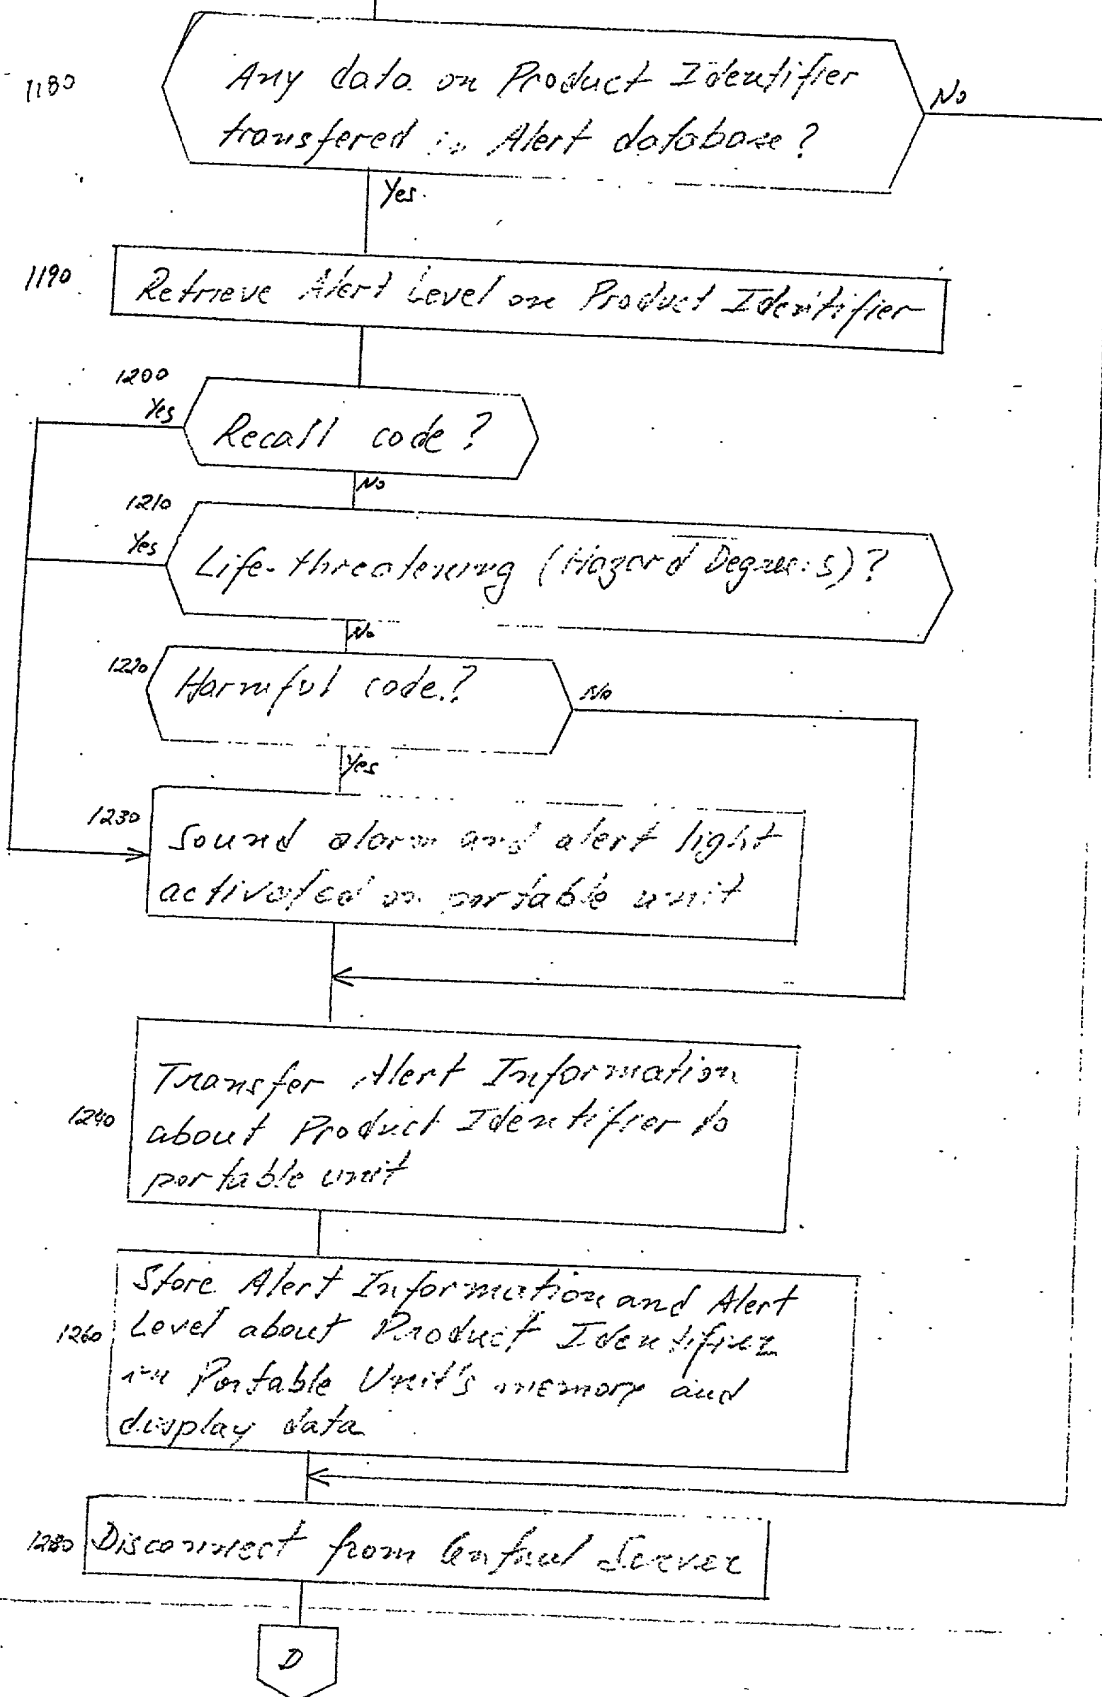 1180
Any data on Product Identifier
transfered in Alert database?
No
Yes.
1190
Retrieve Alert Level on Product Identifier
1200
Yes
Recall code?
No
1210
Yes
Life-threatening (Hazard Degree: 5)?
No
1220
Harmful code?
No
Yes
1230
Sound alarm and alert light
activated on portable unit
Transfer Alert Information
1240
about Product Identifier to
portable unit
Store Alert Information and Alert
1260
Level about Product Identifier
in Portable Unit's memory and
display data
1280
Disconnect from Central Server
D